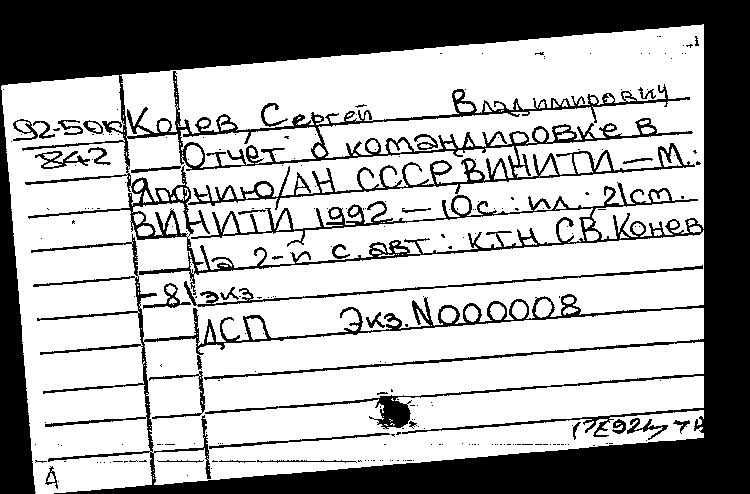 92-50к Конев, Сергей Владимирович
842 Отчёт о командировке в
Японию/АН СССР, ВИНИТИ.—М.:
ВИНИТИ, 1992.—10с.: ил.; 21см.
На 2-й с. авт.: к.т.н. С.В. Конев
-81 экз.
ДСП. Экз. N000008
4